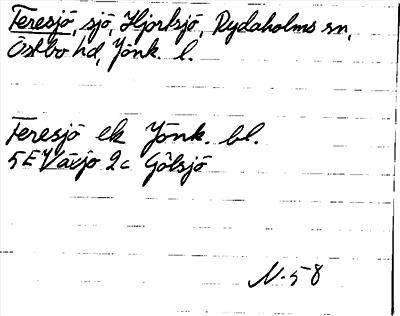 Teresjö, sjö, Hjortsjö, Rydaholms sn,
Östbo hd, Jönk. l.
Teresjö ek Jönk. bl.
5E Växjö 2c Götsjö
N-58